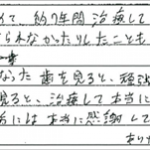 て、約7年間 治療して
られなかったりしたことも
なった歯を見ると、頑張
見ると、治療して本当に
には本当に感謝して
あり